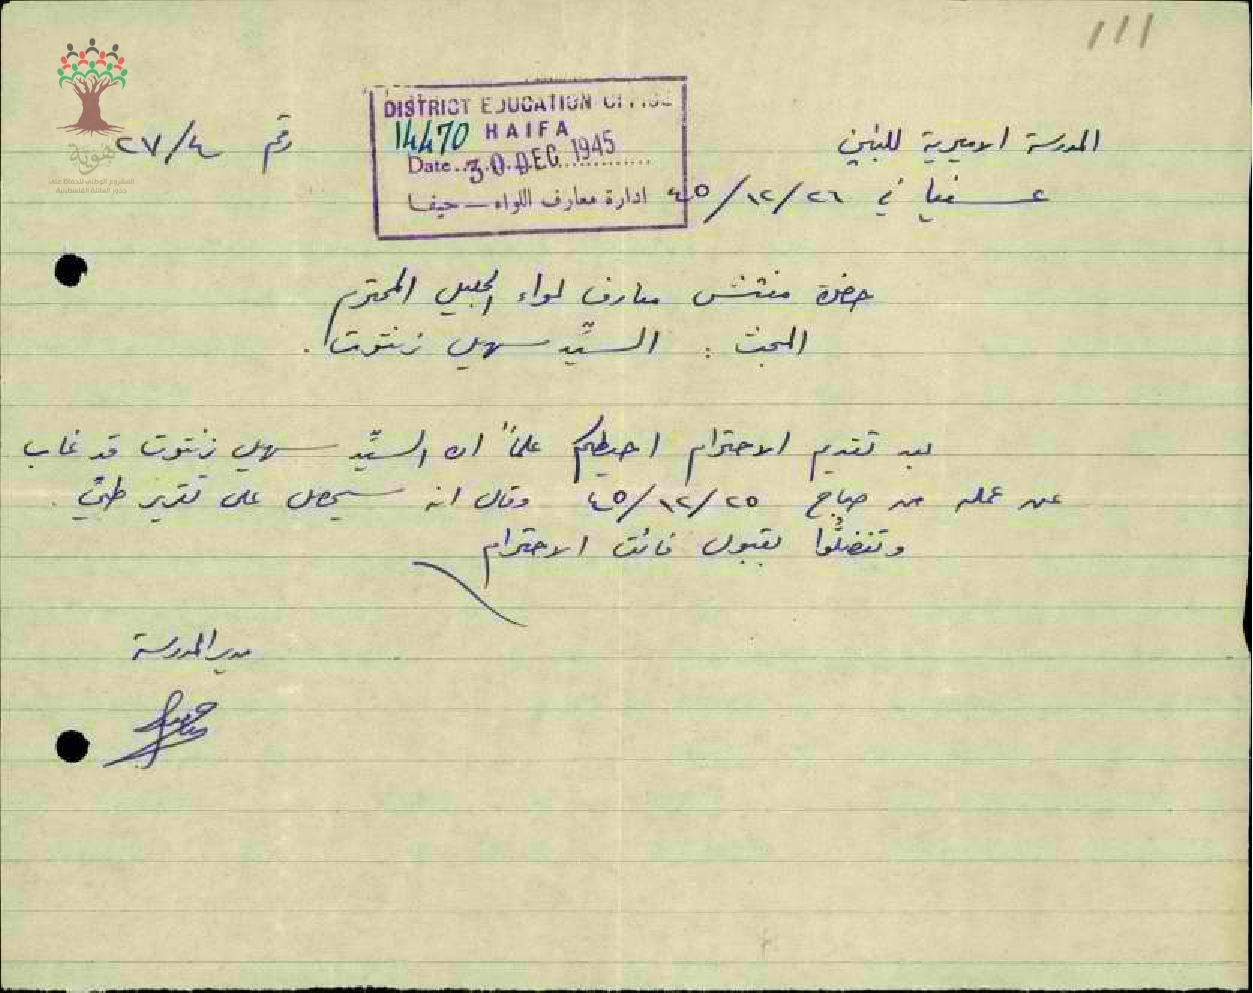 111
المدرسة الاميرية للبنين
رقم ٢٧/٤
عسفيا في ٢٦/١٢/٤٥
DISTRICT EDUCATION OFFICE
14470 HAIFA
Date 30 DEC 1945
ادارة معارف اللواء – حيفا
هوية
المشروع الوطني للحفاظ على
جذور العائلة الفلسطينية
حضرة مفتش معارف لواء الجليل المحترم
المبحث : السيّد سهيل زنتوت .
بعد تقديم الاحترام احيطكم علماً ان السيّد سهيل زنتوت قد غاب
عن عمله من صباح ٢٥/١٢/٤٥ وقال انه سيحصل على تقرير طبي .
وتفضلّوا بقبول فائق الاحترام
مدير المدرسة